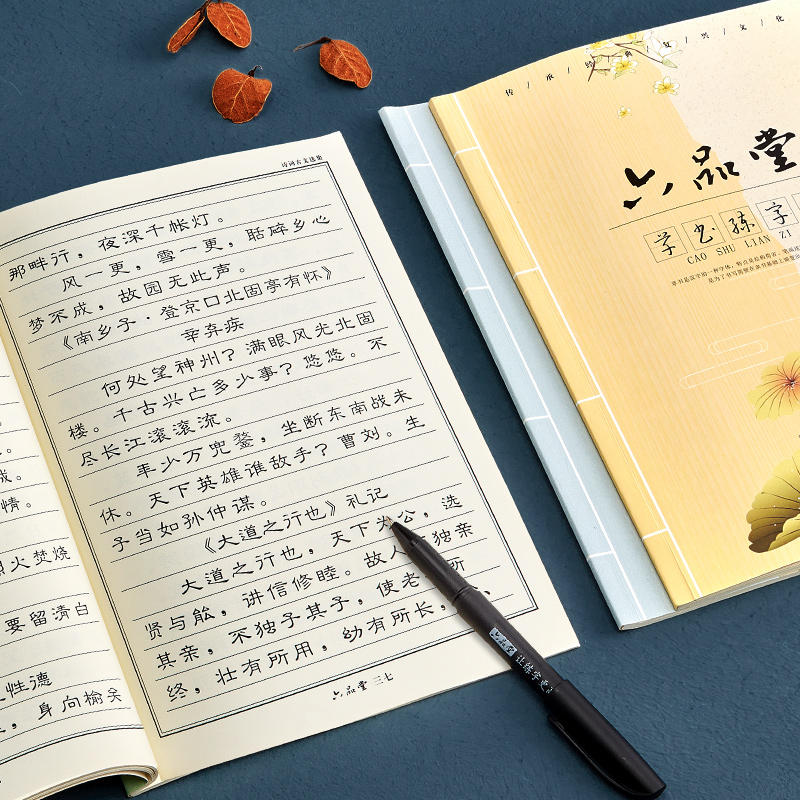 诗词古文选集
那畔行，夜深千帐灯。
风一更，雪一更，聒碎乡心
梦不成，故园无此声。
《南乡子·登京口北固亭有怀》
辛弃疾
何处望神州？满眼风光北固
楼。千古兴亡多少事？悠悠。不
尽长江滚滚流。
年少万兜鍪，坐断东南战未
休。天下英雄谁敌手？曹刘。生
子当如孙仲谋。
《大道之行也》礼记
大道之行也，天下为公，选
贤与能，讲信修睦。故人 独亲
其亲，不独子其子，使老 所
终，壮有所用，幼有所长，
六品堂 三七
情。
烈火焚烧
要留清白
性德
，身向榆关
六品堂
让练字
传/承/经/典/复/兴/文/化
六品堂
学书练字
CAO SHU LIAN ZI